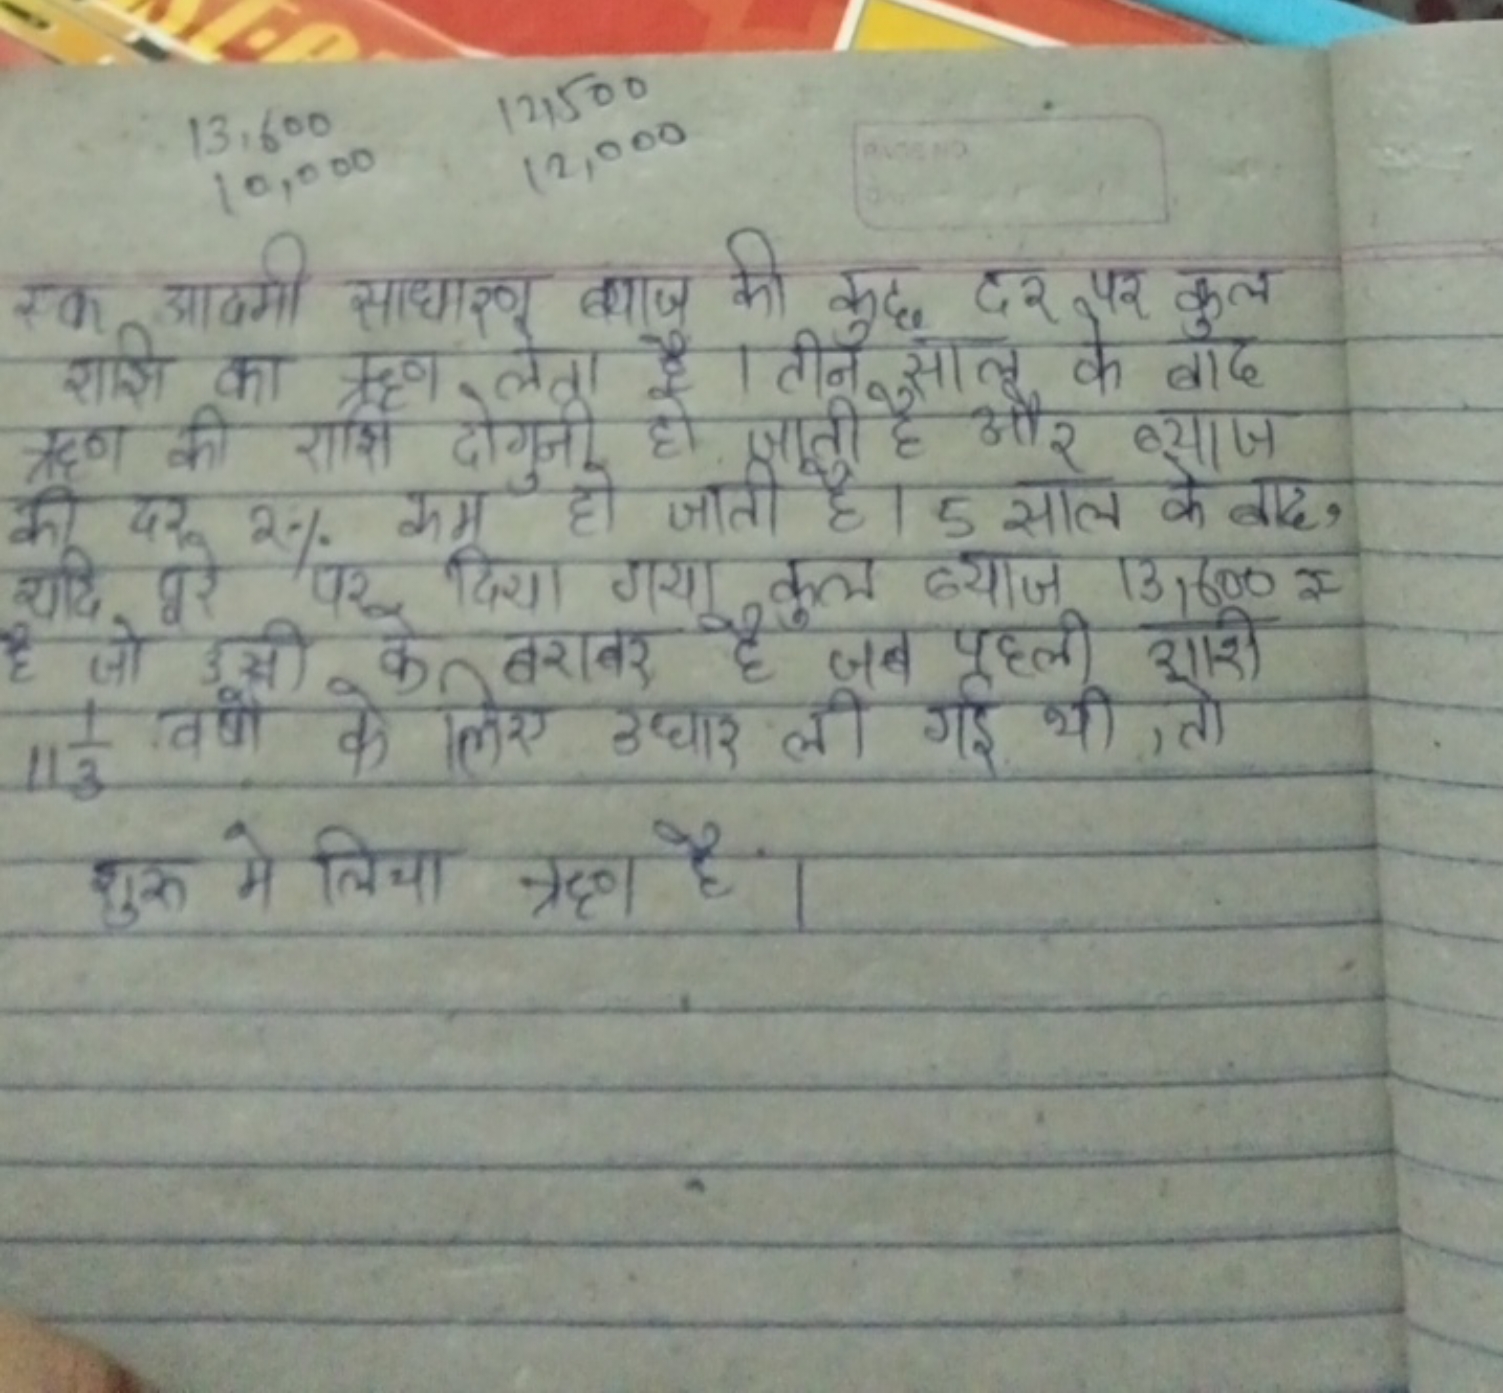 13,600 12,500
10,000 12,000
PAGE NO.
एक आदमी साधारण ब्याज की कुछ दर पर कुल
राशि का ऋण लेता है । तीन साल के बाद
ऋण की राशि दोगुनी हो जाती है और ब्याज
की दर 2% कम हो जाती है । 5 साल के बाद,
यदि पूरे पर दिया गया कुल ब्याज 13,600 रू
है जो उसी के बराबर है जब पहली राशी
11 1/3 वर्षो के लिए उधार ली गई थी, तो
शुरू मे लिया ऋण है ।